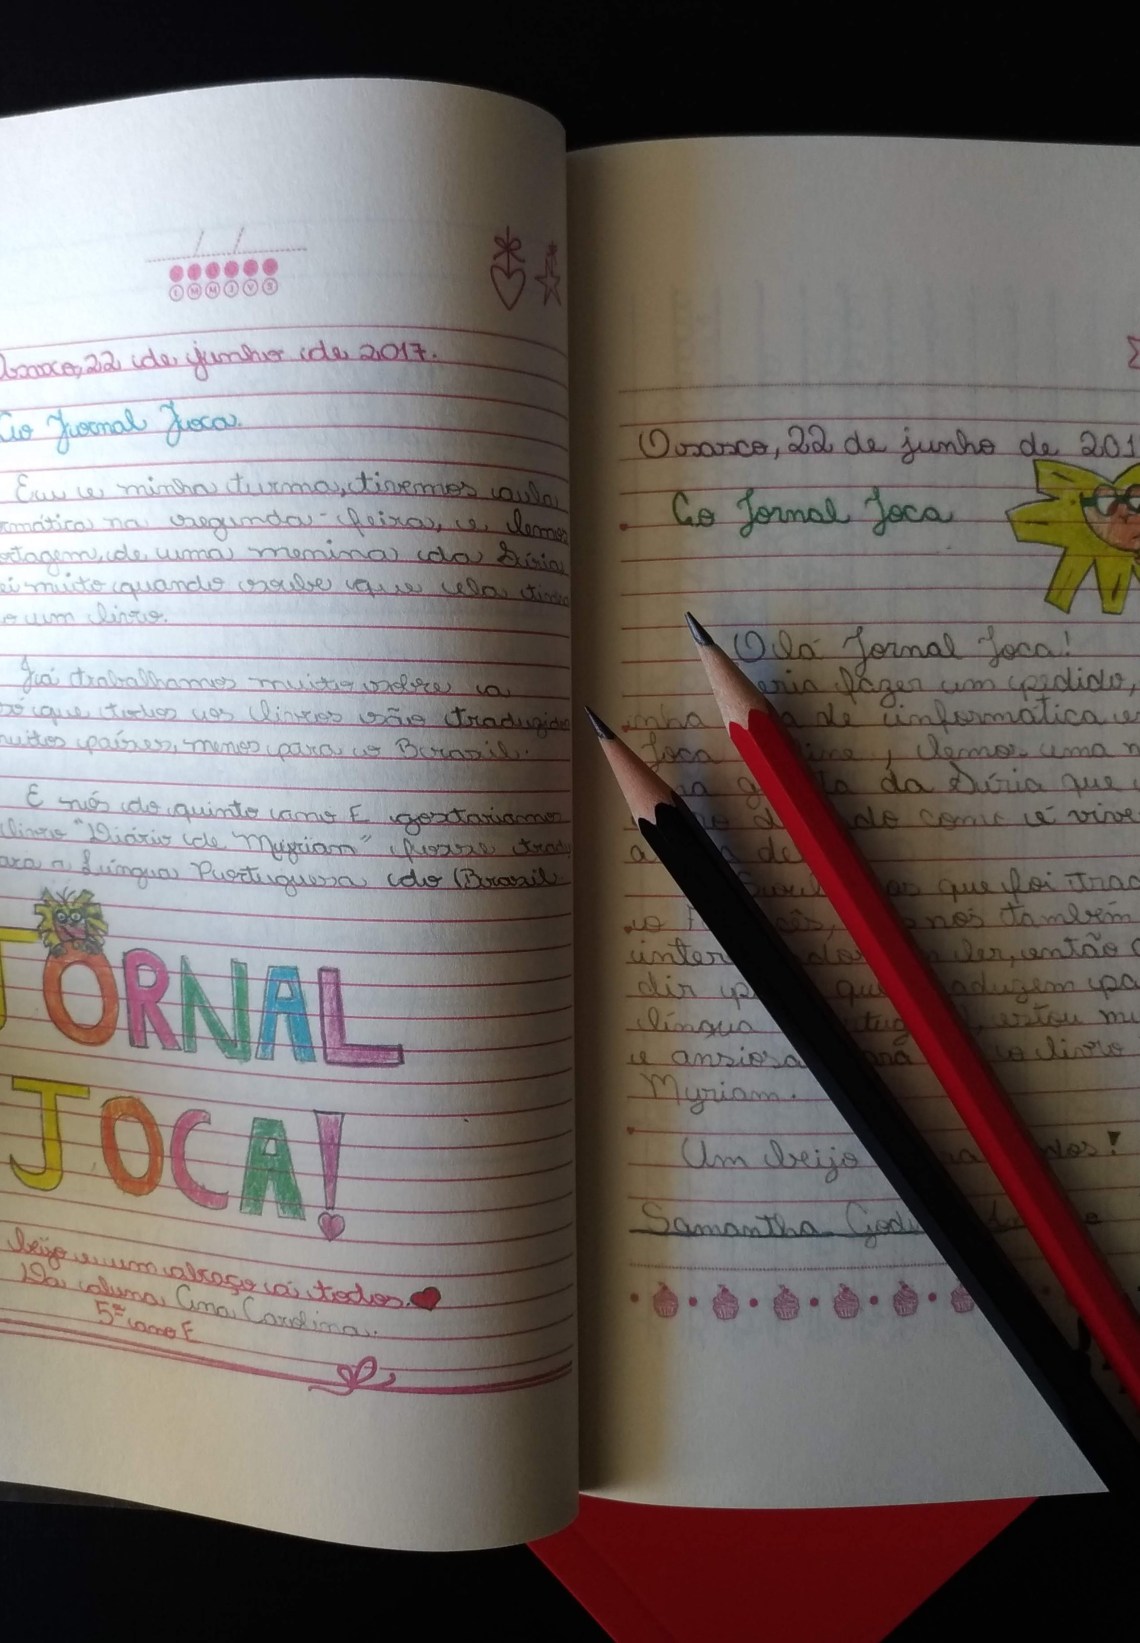 Osasco, 22 de junho de 2017.
Ao Jornal Joca.
Eu e minha turma, tivemos aula
mática na segunda-feira, e lemos
ortagem, de uma menina da Síria
ei muito quando soube que ela tinha
o um livro.
Já trabalhamos muito sobre a
que todos os livros são traduzidos
muitos países, menos para o Brasil.
E nós do quinto ano E gostariamos
livro "Diário de Myriam" fosse trad
ara a Língua Portuguesa do Brasil
JORNAL
JOCA!
beijo e um abraço a todos.
Da aluna Ana Carolina.
5º ano E
Osasco, 22 de junho de 201
Ao Jornal Joca
Olá Jornal Joca!
eria fazer um pedido,
nha de informática e
Joca lemos uma
da Síria que
como é vive
a de
que foi trad
o nós também
inter ler, então
dir que traduzem pa
língua estou mu
e ansiosa o livro
Myriam.
Um beijo dos!
Samantha